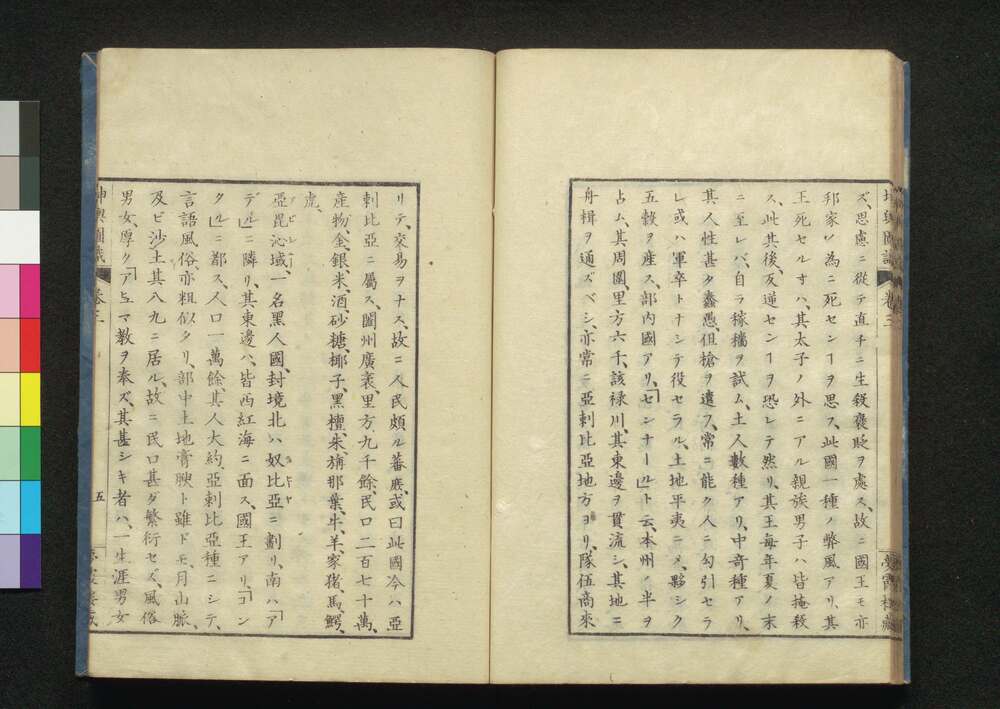 ズ、思慮ニ從テ直チニ生殺褒貶ヲ處ス、故ニ國王モ亦
邦家ノ為ニ死センヿヲ思フ、此國一種ノ弊風アリ、其
王死セルオハ、其太子ノ外ニアル親族男子ハ皆掩殺
ス、此其後、反逆センヿヲ恐レテ然リ、其王每年夏ノ末
ニ至レバ、自ラ稼穡ヲ試ム、土人數種アリ、中奇種アリ、
其人性甚タ蠢愚、但槍ヲ遣フ、常ニ能ク人ニ勾引セラ
レ或ハ軍卒トナシテ役セラル、土地平夷ニメ、夥シク
五穀ヲ產ス、部内國アリ、「センナール」ト云、本州ノ半ヲ
占ム、其周圍、里方六千、該祿川、其東邊ヲ貫流シ、其地ニ
舟楫ヲ通ズベシ、亦常ニ亞剌比亞地方ヨリ、隊伍商來
リテ、交易ヲナス、故ニ人民頗ル蕃庶、或曰此國今ハ亞
剌比亞ニ屬ス、闔州廣袤、里方九千餘、民口二百七十萬、
產物、金、銀、米、酒、砂糖、椰子、黑檀、朱、旃那葉、牛、羊、家猪、馬、鰐、
虎、
亞毘沁域、一名黑人國、封境北ハ奴比亞ニ劃リ、南ハ「ア
デル」ニ隣リ、其東邊ハ、皆西紅海ニ面ス、國王アリ、「コン
タル」ニ都ス、人口一萬餘、其人大約、亞剌比亞種ニシテ、
言語風俗、亦粗似タリ、部中土地膏腴ト雖ドモ、月山脈、
及ビ沙土其八九ニ居ル、故ニ民口甚ダ繁衍セズ、風俗
男女、厚ク「ロマ教ヲ奉ズ、其甚シキ者ハ、一生涯男女
坤輿圖識 卷三 五